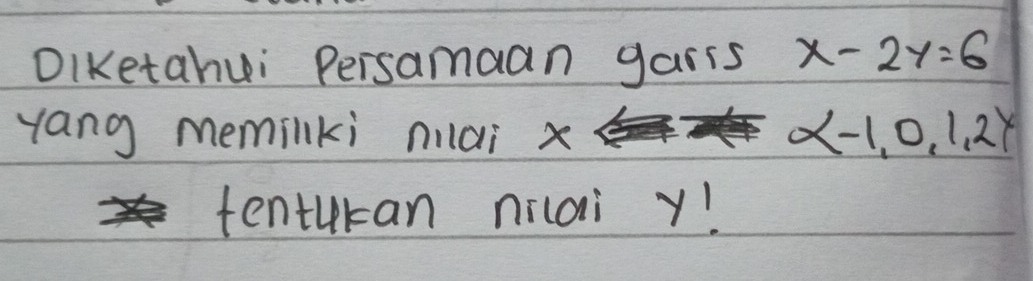 Diketahui Persamaan garis x - 2y = 6
yang memiliki nilai x {-1, 0, 1, 2}
tentukan nilai y!